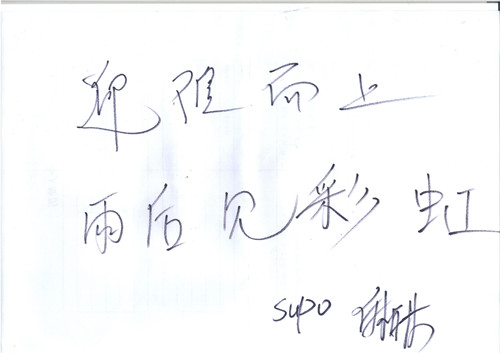 迎难而上
雨后见彩虹
supo